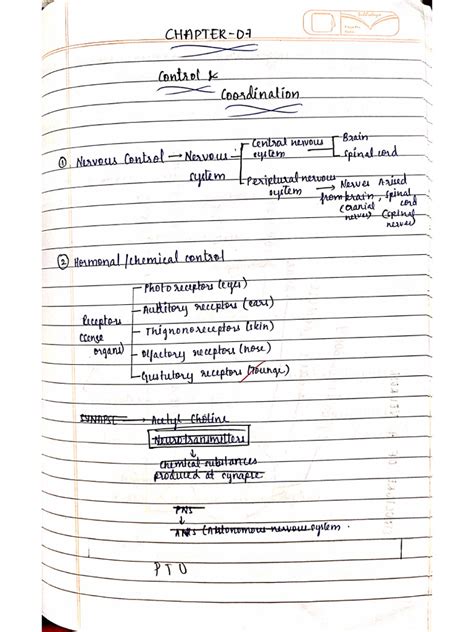 CHAPTER-07
Control &
Coordination
① Nervous Control → Nervous system
Central nervous system
Brain
Spinal cord
Periptural nervous system → Nerves Arised
from brain, spinal cord
(cranial nerves) (spinal nerves)
② Hormonal /chemical control
Receptors
(sense organs)
Photoreceptors (eyes)
Auditory receptors (ears)
Thignonoreceptors (skin)
Olfactory receptors (nose)
Gustutory receptors (tounge)
SYNAPSE → Acetyl Choline
Neurotransmitters
chemical substances
produced at synapse
PNS
ANS (Autonomous nervous system.
PTO